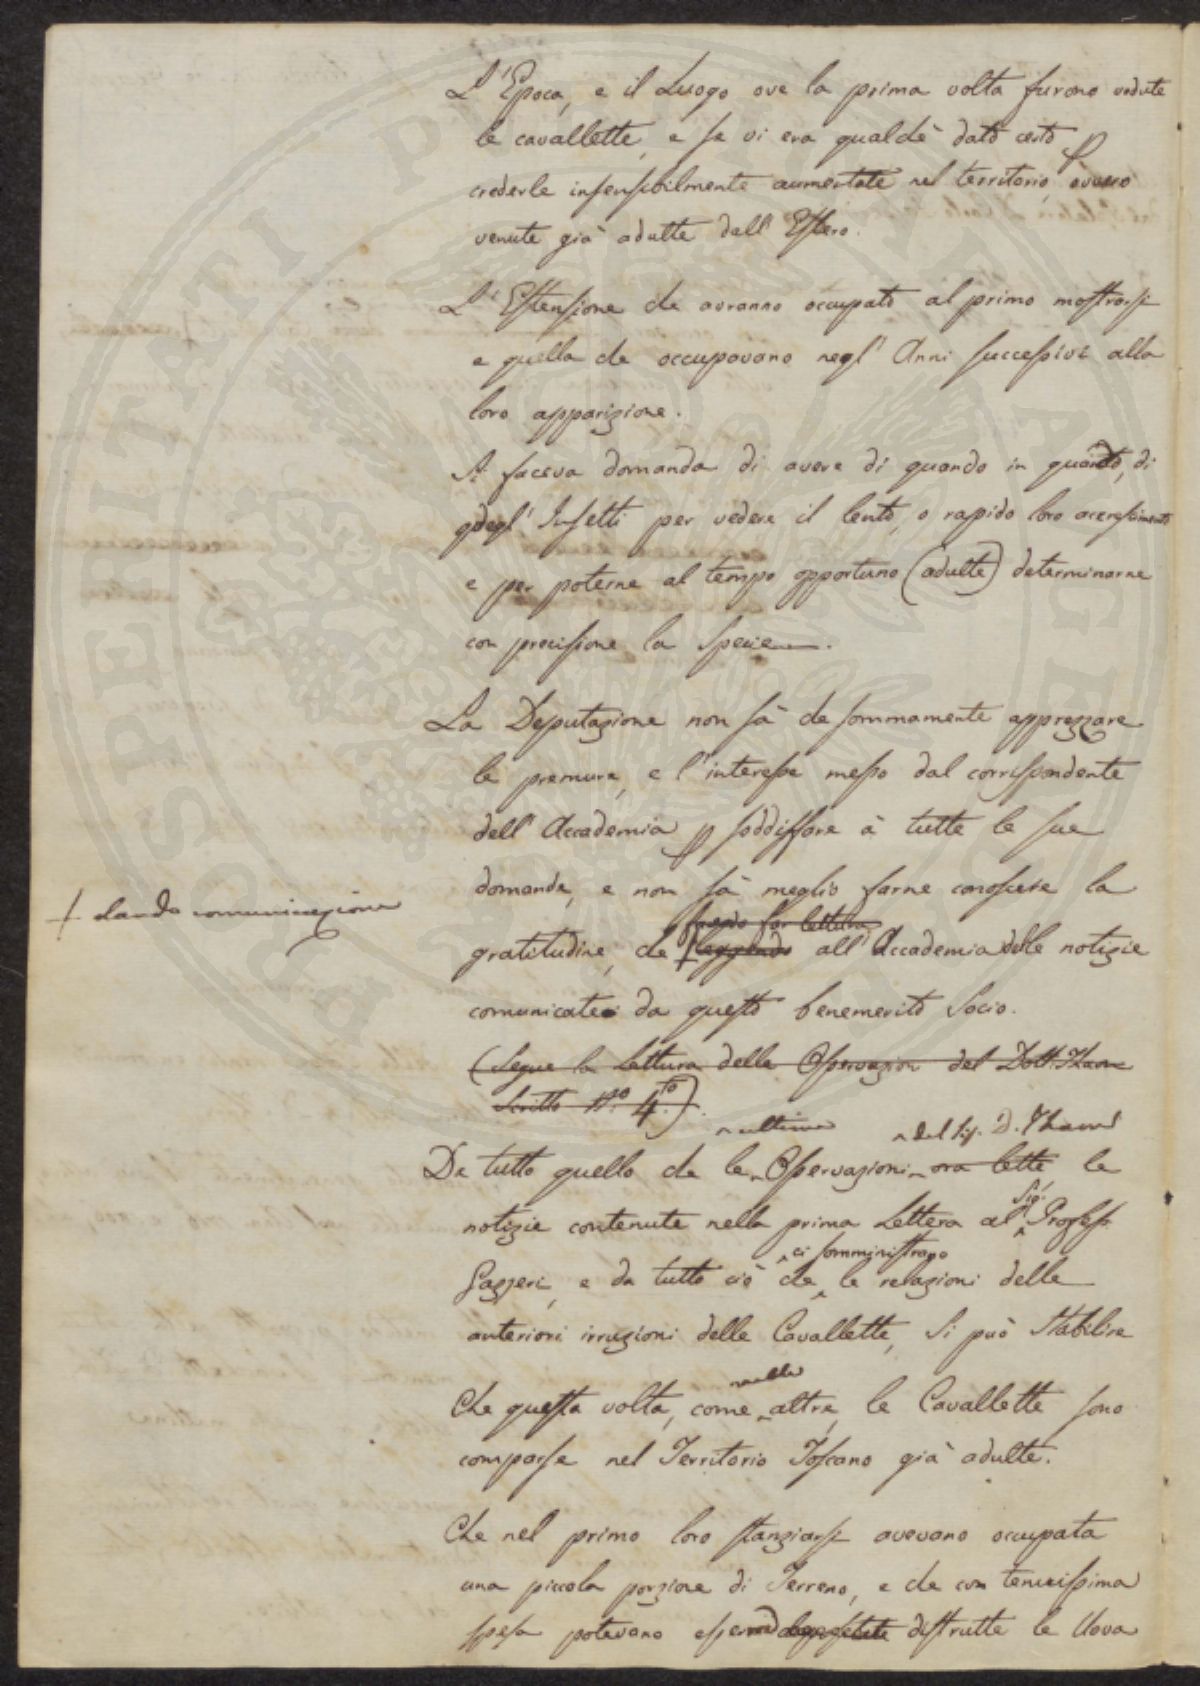 L'Epoca, e il Luogo ove la prima volta furono vedute
le cavallette, e se vi era qualche dato certo p
crederle insensibilmente aumentate nel territorio, ovvero
venute già adulte dall'Estero.
L'Estensione che avranno occupato al primo mostrarsi
e quella che occupavano negl'Anni successivi alla
loro apparizione.
Si faceva domanda di avere di quando in quando, di
quegl'Insetti per vedere il lento, o rapido loro accrescimento
e per poterne al tempo opportuno (adulte) determinarne
con precisione la Specie.
La Deputazione non sà che sommamente apprezzare
le premure, e l'interesse messo dal corrispondente
dell'Accademia p soddisfare à tutte le sue
domande, e non sà meglio farne conoscere la
+ dando comunicazione
facendo far lettura
gratitudine, che leggendo all'Accademia delle notizie
comunicate da questo benemerito Socio.
(Segue la Lettura delle Osservazioni del Dott. Thaon
Scritto N.o 4.to)
ultime del Sig. D. Thaon
Da tutto quello che le Osservazioni ora lette le
Sig.
notizie contenute nella prima Lettera al Profess.
ci somministrano
Gazzeri, e da tutto ciò che le relazioni delle
anteriori irruzioni delle Cavallette, si può Stabilire
nelle
Che questa volta, come altre, le Cavallette sono
comparse nel Territorio Toscano già adulte.
Che nel primo loro stanziarsi avevano occupata
una piccola porzione di Terreno, e che con tenuissima
spesa potevano esser distrutte le Uova
PROSPERITATI PUBLICAE AUGENDAE